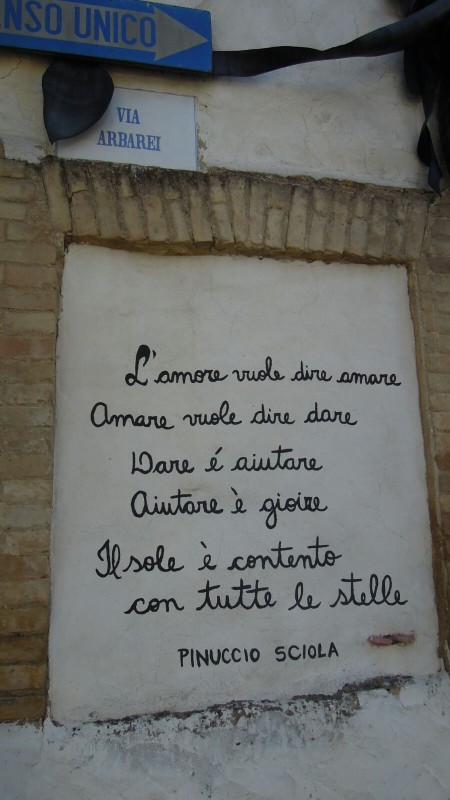 NSO UNICO
VIA
ARBAREI
L'amore vuole dire amare
Amare vuole dire dare
Dare é aiutare
Aiutare è gioire
Il sole è contento
con tutte le stelle
PINUCCIO SCIOLA